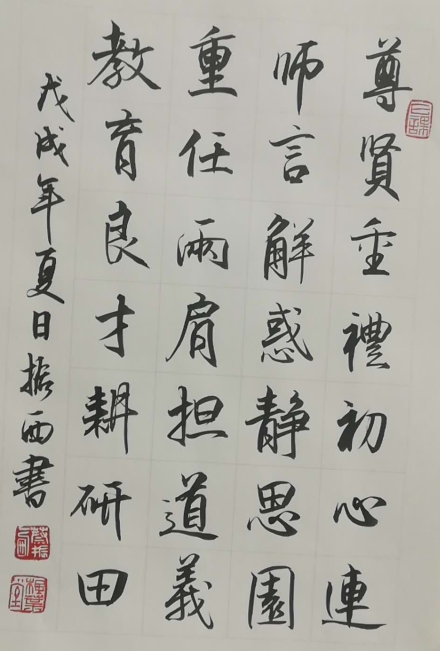 尊賢重禮初心連
師言解惑静思園
重任兩肩担道義
教育良才耕研田
戊戌年夏日振西書